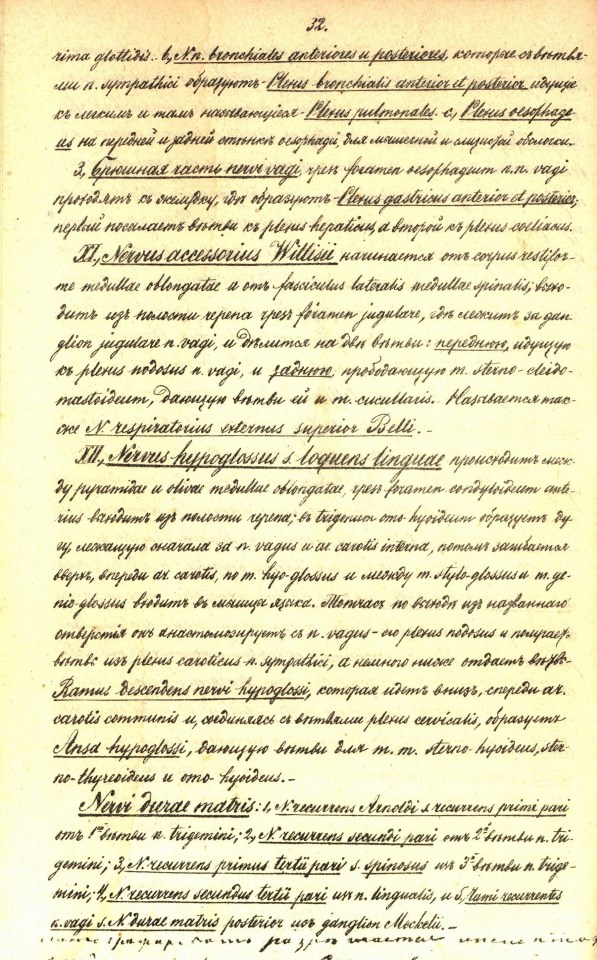 32.
rima glottidis. b, N.n. bronchiales anteriores и posteriores, которые съ вѣтвя-
ми n. sympathici образуютъ - Plexus bronchialis anterior et posterior идущіе
къ легкимъ и тамъ называющіеся - Plexus pulmonales. c, Plexus oesophage-
us на передней и задней стѣнкѣ oesophagi, для мышечной и слизистой оболочки.
3, Брюшная часть nervi vagi, чрезъ foramen oesophageum n.n. vagi
проходятъ къ желудку, гдѣ образуютъ - Plexus gastricus anterior et posterior;
первый посылаетъ вѣтви къ plexus hepaticus, а второй къ plexus coeliacus.
XI, Nervus accessorius Willisii начинается отъ corpus restifor-
me medullae oblongatae и отъ fasciculus lateralis medullae spinalis; выхо-
дитъ изъ полости черепа чрезъ foramen jugulare, гдѣ лежитъ за gan-
glion jugulare n. vagi, и дѣлится на двѣ вѣтви: переднюю, идущую
къ plexus nodosus n. vagi, и заднюю, прободающую m. sterno-cleido-
mastoideum, дающую вѣтви ей и m. cucullaris. Называется так-
же N. respiratorius externus superior Belli. -
XII, Nervus hypoglossus s. loquens linguae происходитъ меж-
ду pyramidae и olivae medullae oblongatae, чрезъ foramen condyloideum ante-
rius выходитъ изъ полости черепа; въ trigonum omo-hyoideum образуетъ ду-
гу, лежащую сначала за n. vagus и ar. carotis interna, потомъ загибается
вверхъ, впереди ar. carotis, по m. hyo-glossus и между m. stylo-glossus и m. ge-
nio-glossus входитъ въ мышцы языка. Тотчасъ по выходѣ изъ названнаго
отверстія онъ анастомозируетъ съ n. vagus - его plexus nodosus и получаетъ
вѣтвь изъ plexus caroticus n. sympathici, а немного ниже отдаетъ вѣтвь
Ramus descendens nervi hypoglossi, которая идетъ внизъ, спереди ar.
carotis communis и, соединяясь съ вѣтвями plexus cervicalis, образуетъ
Ansa hypoglossi, дающую вѣтви для m. m. sterno-hyoideus, ster-
no-thyreoideus и omo-hyoideus. -
Nervi durae matris: 1, N. recurrens Arnoldi s. recurrens primi pari
отъ 1ой вѣтви n. trigemini; 2, N. recurrens secundi pari отъ 2ой вѣтви n. tri-
gemini; 3, N. recurrens primus tertii pari s. spinosus изъ 3ей вѣтви n. trige-
mini; 4, N. recurrens secundus tertii pari изъ n. lingualis, и 5, Rami recurrentis
n. vagi s. N. durae matris posterior изъ ganglion Meckelii. -